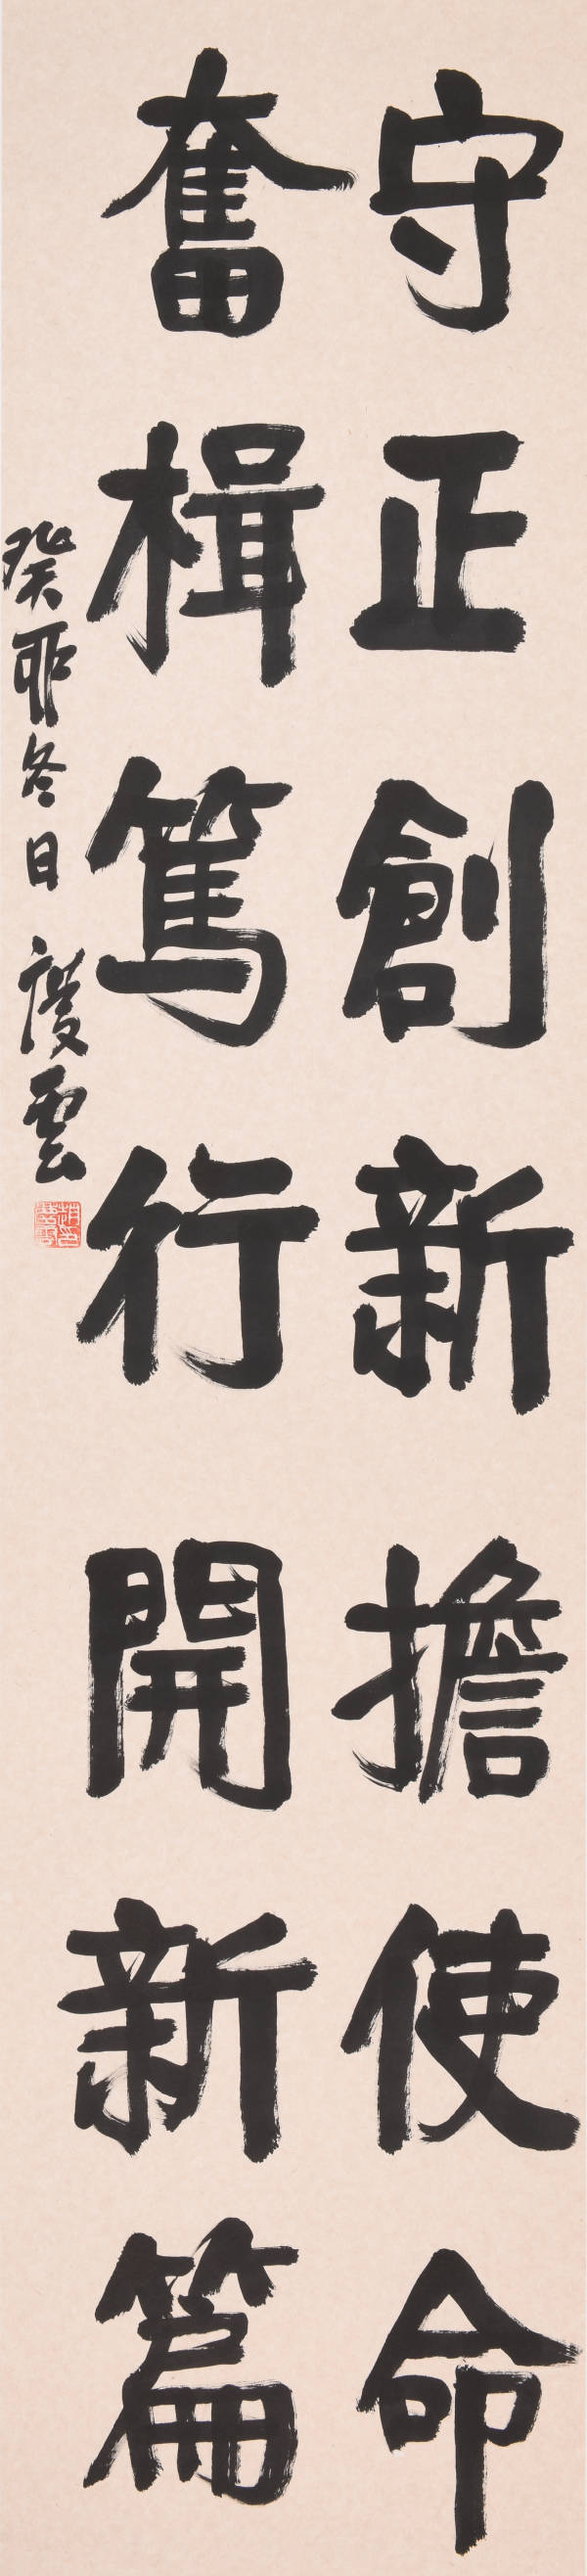 守正創新擔使命
奮楫篤行開新篇
癸卯冬日 慶雲